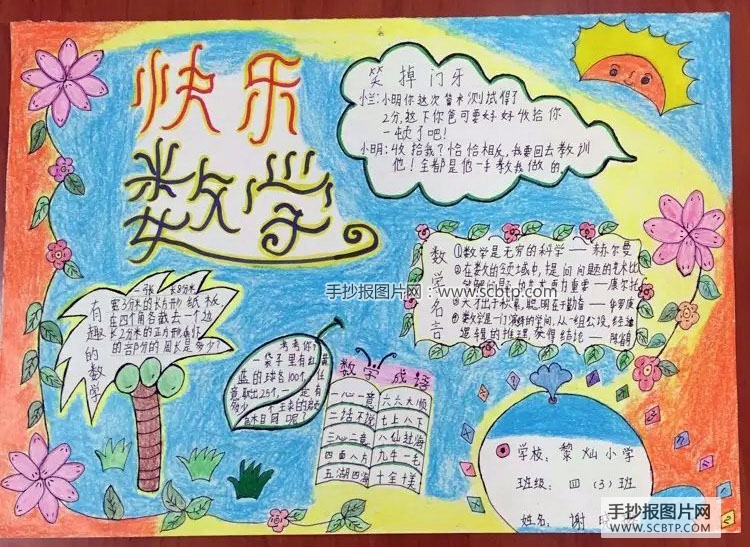 快乐
数学
笑掉门牙
小兰:小明你这次
测试得了
2分,这下你爸可要好好收拾你
一顿了吧!
小明:收拾我?恰恰相反,我要回去教训
他!全都是他一手教我做的
数学名言
①数学是无穷的科学——赫尔曼
②在数的领域中,提问问题的艺术比
解
问题
重要——康尔托
在于勤奋——华罗庚
④数学是一门演绎的学问,从一组公设,经过
逻辑的推理,获得结论——陈省身
手抄报图片网:www.scbtp.com
有趣的数学
一张长8分米
宽3分米的长方形纸板
在四个角各截去一个边
长2分米的正方形
的周长是多少?
考考你
一袋子里有红黄
蓝的球各100个,
取出25个,一定有
多少
数学成语
一心一意 六六大顺
二话不说 七上八下
三心二意 八仙过海
四面八方 九牛一毛
五湖四海 十全十美
学校:黎灿小学
班级:四(3)班
姓名:谢
手抄报图片网
WWW.SCBTP.COM